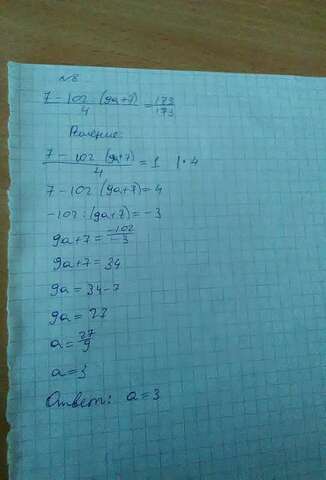 №8
7 - 102 : (9a+7) / 4 = 173/173
Решение:
7 - 102 : (9a+7) / 4 = 1 | · 4
7 - 102 : (9a+7) = 4
-102 : (9a+7) = -3
9a+7 = -102/-3
9a+7 = 34
9a = 34-7
9a = 27
a = 27/9
a = 3
Ответ: a = 3